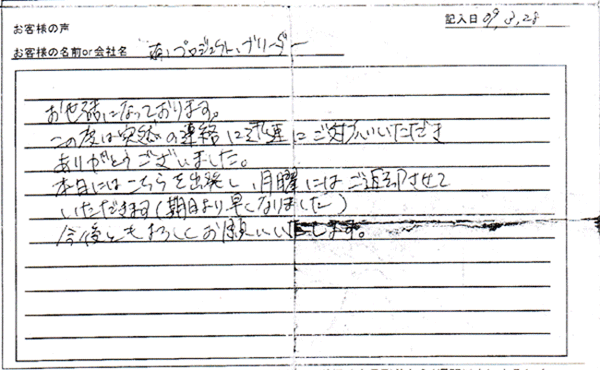 お客様の声
記入日 09, 3, 28
お客様の名前or会社名 プロジェクト,ブリーダー
お世話になっております。
この度は突然の連絡に迅速にご対応いただき
ありがとうございました。
本日にはこちらを出発し、月曜にはご返却させて
いただきます(期日より早くなりました)
今後ともよろしくお願いいたします。